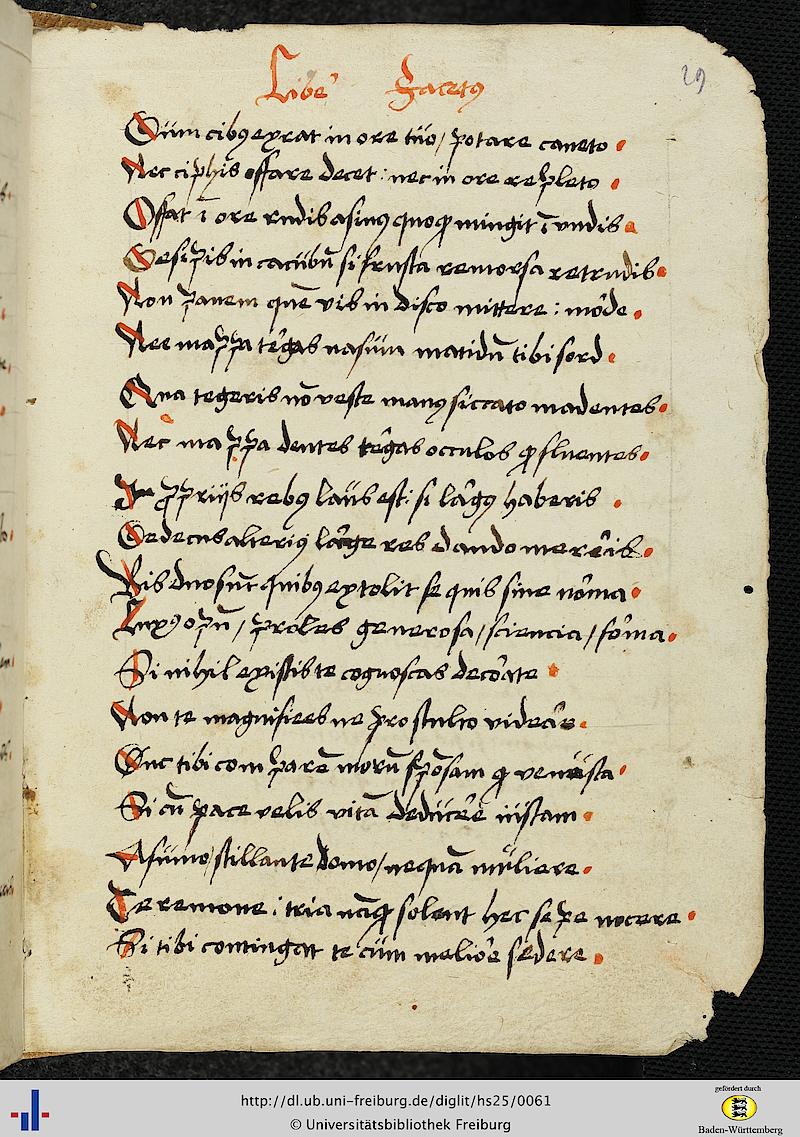 Libe' Facetus
29
Cum cibus exrat in ore tuo / potare caneto
Nec ciphis offare decet : nec in ore repleto
Offat ī ore rudis asinus quoque mingit ī undis
Se sipis in cacubū si frusta remorsa retrudis
Non panem quē vis in disco mittere : mo'de
Nec mappa te'gas nasum matidū tibi sord
Qua tegeris nō veste manus siccato madentes
Nec mappa dentes te'gas occulos profluentes
In propriis rebus laus est : si la'gus haberis
Sedecus alterius la'ge res dando mere'is
Bis duo sunt quibus extolit se quis sine no'ma
Luxus opū / proles generosa / sciencia / fo'ma
Si nihil existis te cognoscas deco'ate
Non te magnifices ne pro stulto videa's
Duc tibi comparē morū sposam quoque venusta
Si cū pace velis vitā deduce'e iustam
A fumo / stillante domo / nequā muliere
Te remove : tria namque solent hec sepe nocere
Si tibi contingat te cum melio'e sedere
http://dl.ub.uni-freiburg.de/diglit/hs25/0061
© Universitätsbibliothek Freiburg
gefördert durch
Baden-Württemberg